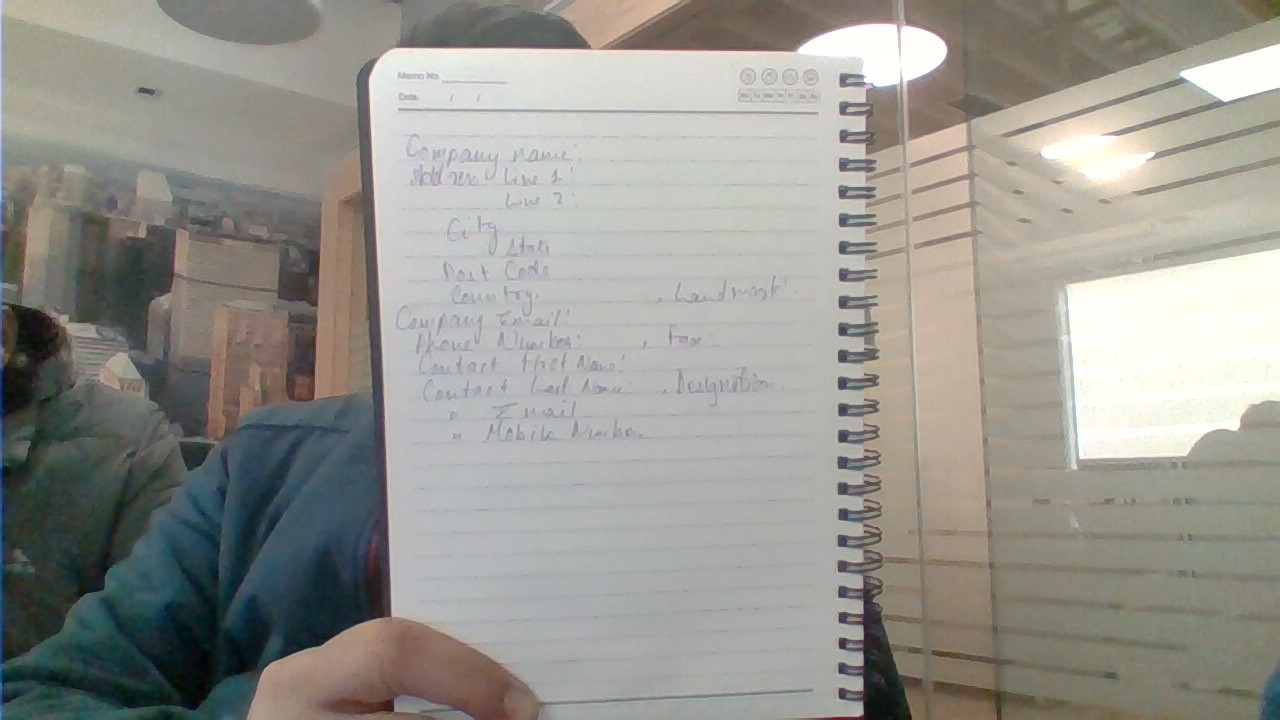 Memo No.
Date / /
Mo Tu We Th Fr Sa Su
Company name:
Address Line 1:
Line 2:
City
State
Post Code
Country. , Landmark:
Company Email:
Phone Number: , Fax:
Contact First Name:
Contact Last Name: , Designation.
" Email
" Mobile Number